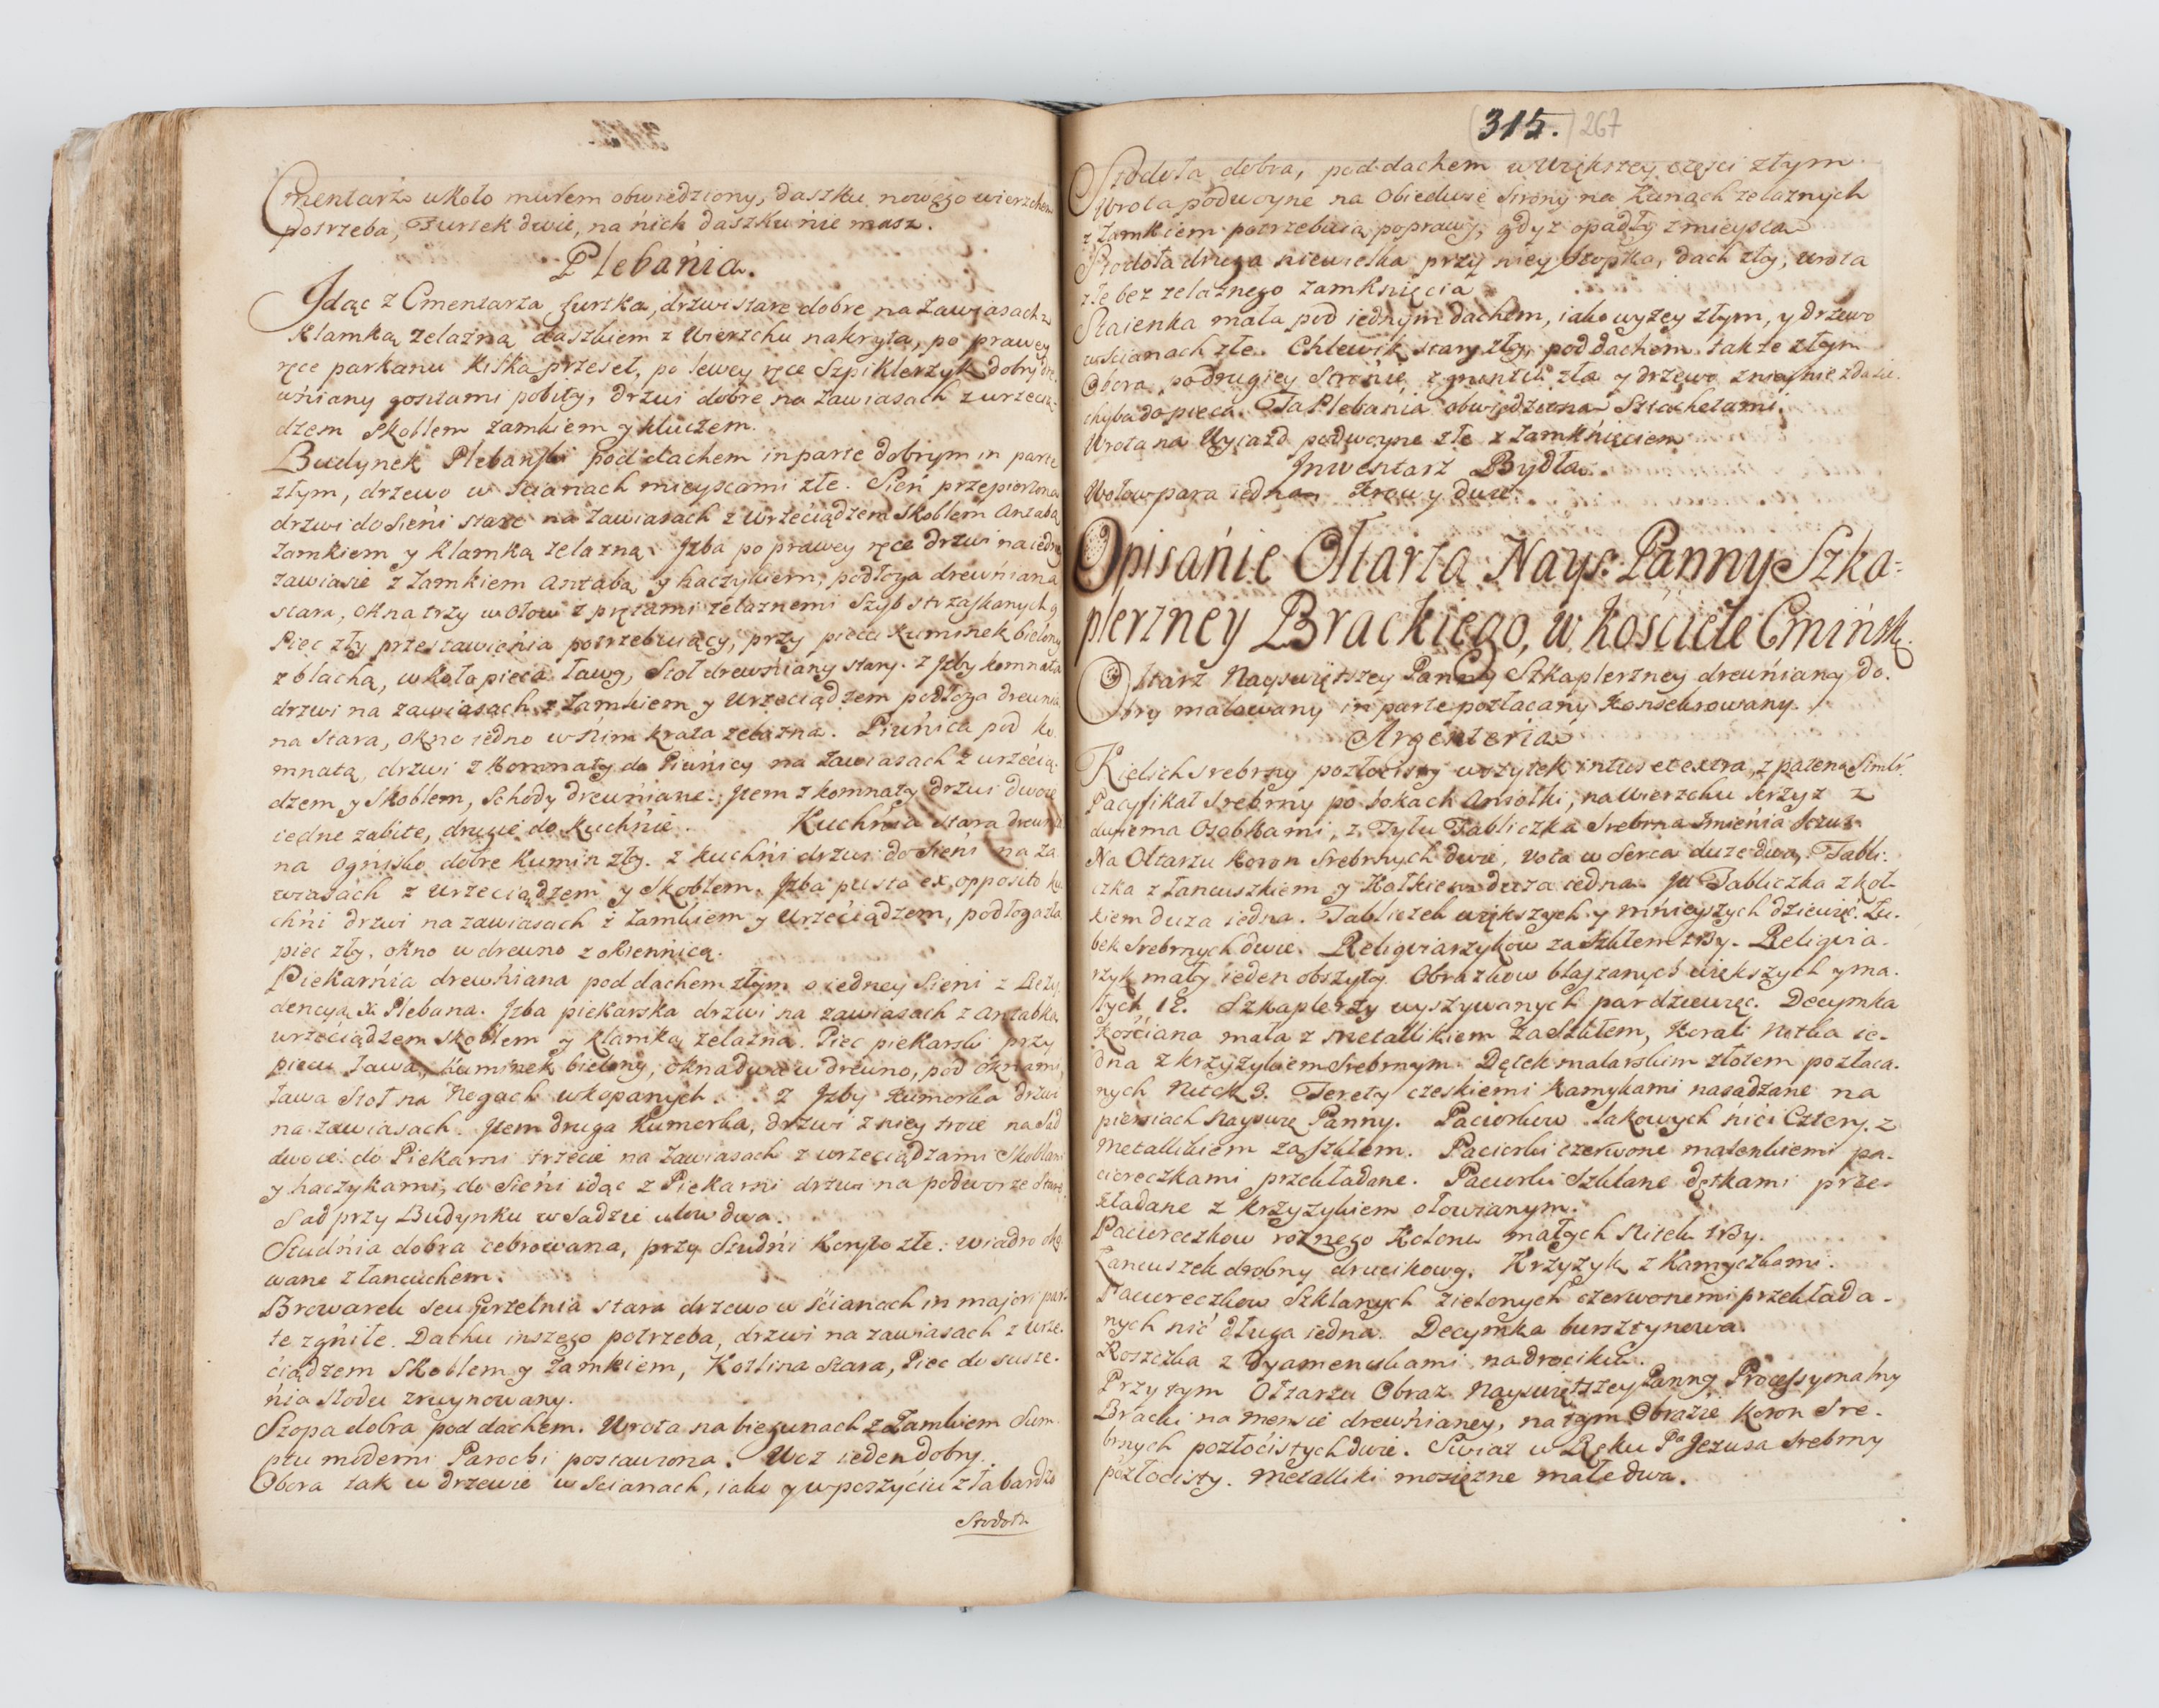 Cmentarz wkoło murem obwiedziony, daszku nowego wierzchem
potrzeba, Furtek dwie, na nich daszku nie masz.
Plebańia.
Jdąc z Cmentarza furtka, drzwi stare dobre na zawiasach z
Klamką zelazną daszkiem z Wierzchu nakryta, po prawey
ręce parkanu kilka przeseł, po lewey ręce Szpiklerzyk dobry dre,
wńiany gontami pobity, drzwi dobre na zawiasach z wrzecią,
dzem skoblem zamkiem y kluczem.
Budynek Plebanski pod dachem in parte dobrym in parte
złym, drzewo w Scianach mieyscami złe. Sień przepierzona
drzwi do Sieńi stare na zawiasach z wrzećiądzem skoblem Antabą
Zamkiem y Klamką zelazną. Jzba po prawey ręce drzwi na iedney
zawiasie z zamkiem antabą y haczykiem, podłoga drewńiana
stara, okna trzy w ołow z prętami zelaznemi Szyb strzaskanych 9
Piec zły przestawienia potrzebuiący, przy piecu kuminek bielony
z blachą, wkoło pieca ławy, Stoł drewńiany stary. z Jzby komnata
drzwi na zawiasach z zamkiem y Wrzeciądzem podłoga drewnia
na stara, okno iedno w nim krata zelazna. Piwńica pod ko,
mnatą, drzwi z Komnaty do Piwńicy na zawiasach z wrzecią,
dzem y skoblem, Schody drewńiane. Jtem z komnaty drzwi dwoie
iedne zabite, drugie do kuchńie. Kuchńia stara drewnia
na Ogńisko dobre Kumin zły. z kuchńi drzwi do Sieńi na za
wiasach z wrzeciądzem y Skoblem. Jzba pusta ex opposito ku
chńi drzwi na zawiasach z zamkiem y Wrzećiądzem, podłoga zła
piec zły, okno w drewno z okiennicą.
Piekarńia drewńiana pod dachem złym o iedney Sieni z Rezy
dencyą X. Plebana. Jzba piekarska drzwi na zawiasach z antabką
wrzećiądzem skoblem y klamką zelazną. Piec piekarski przy
piecu Ława, kuminek bielony, okna dwa w drewno, pod oknami,
ława stoł na Nogach wkopanych. z Jzby kumorka drzwi
na zawiasach. Jtem druga Kumorka, drzwi z niey troie na sad
dwoie do Piekarni trzecie na zawiasach z wrzeciądzami Skoblami
y haczykami, do Sieńi idąc z Piekarni drzwi na podworze stare
Sad przy Budynku w Sadzie ulow dwa.
Studńia dobra cebrowana, przy Studńi Koryto złe. wiadro oko
wane z łancuchem.
Browarek seu Gorzelnia stara drzewo w ścianach in majori par,
te zgńiłe. Dachu inszego potrzeba, drzwi na zawiasach z wrze,
ćiądzem skoblem y zamkiem, Kozlina stara, Piec do susze,
ńia słodu zruynowany.
Szopa dobra pod dachem. Wrota na biegunach z Zamkiem Sum
ptu moderni Parochi postawiona. Woz ieden dobry.
Obora tak w drzewie w scianach, iako y w poszyćiu zła bardzo
Stodoła
315. 267
Stodoła dobra, pod dachem w większey częsci złym
Wrota podwoyne na obiedwie strony na Kunach zelaznych
z Zamkiem potrzebuią poprawy, gdyz opadły z mieysca
Stodoła druga niewielka przy niey szopka, dach zły, wrota
złe bez zelaznego zamknięcia
Staienka mała pod iednym dachem, iako wyzey złym, y drzewo
w scianach złe. Chlewik stary zły, pod dachem takze złym
Obora po drugiey stronie z gruntu zła y drzewo z niey nie zdasię
chyba do pieca. Ta Plebania obwiedziona Sztachetami.
Wrota na Wyiazd podwoyne złe z zamknięciem
Jnwentarz Bydła.
Wołow para iedna. Krowy dwie.
Opisańie Ołtarza Nayś: Panny Szka=
plerzney Brackiego, w Kościele Cmińsk:
Ołtarz Nayswiętszey Panny Szkaplerzney drewńiany do,
bry malowany in parte pozłacany Konsekrowany.
Argenteria
Kielich srebrny pozłocisty wszytek intus et extra, z pateną Simil:
Pacyfikał srebrny po bokach Aniołki, na wierzchu krzyz z
dwiema osobkami, z Tyłu Tabliczka Srebrna Jmienia Jezus
Na Ołtarzu koron Srebrnych dwie, Vota w Serca duze dwa, Tabli,
czka z łancuszkiem y Kołkiem duza iedna. Jt Tabliczka z koł,
kiem duza iedna. Tabliczek większych y mńieyszych dziewięć. Łu,
bek srebrnych dwie. Religwiarzykow za Szkłem trzy. Religwia,
rzyk mały ieden obszyty. Obrazkow blaszanych większych y ma,
łych 12. Szkaplerzy wyszywanych par dziewięc. Decymka
Kościana mała z metallikiem za Szkłem, Korali Nitka ie,
dna z krzyzykiem srebrnym. Dętek malarskim złotem pozłaca,
nych Nitek 3. Ferety czeskiemi kamykami nasadzane na
piersiach Nayswię Panny. Paciorkow takowych nici Cztery z
metallikiem za szkłem. Paciorki czerwone malenkiemi pa,
ciereczkami przekładane. Paciorki Szklane dętkami prze,
kładane z krzyzykiem ołowianym.
Paciureczkow roznego Koloru małych Nitek trzy.
Łancuszek drobny drucikowy. Krzyzyk z Kamyczkami.
Paciureczkow Szklanych zielonych czerwonemi przekłada,
nych nić długa iedna. Decymka bursztynowa.
Roszczka z dyamencikami na drociku.
Przy tym Ołtarzu Obraz Nayswiętszey Panny Processyonalny
Bracki na mensie drewńianey, na tym Obrazie koron Sre,
brnych pozłoćistych dwie. Swiat w Ręku Pa Jezusa srebrny
pozłocisty. metalliki mosięzne małe dwa.